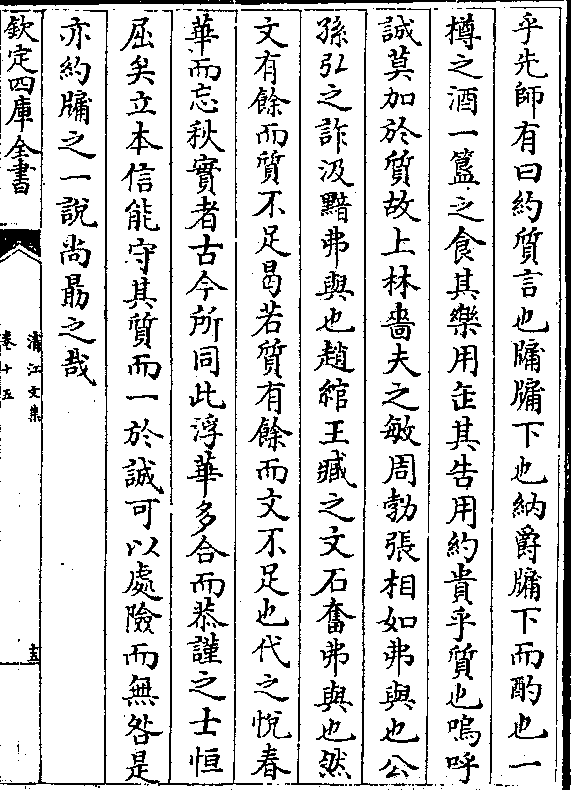 乎先師有曰約質言也牖牖下也納爵牖下而酌也一
樽之酒一簋之食其樂用缶其告用約貴乎質也嗚呼
誠莫加於質故上林嗇夫之敏周勃張相如弗與也公
孫弘之詐汲黯弗與也趙綰王臧之文石奮弗與也然
文有餘而質不足曷若質有餘而文不足也代之悅春
華而忘秋實者古今所同此浮華多合而恭謹之士恒
屈矣立本信能守其質而一於誠可以處險而無咎是
亦約牖之一說尚勗之哉
欽定四庫全書
浦江文集
卷十五